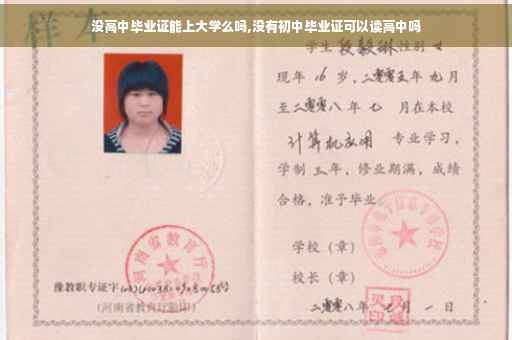 没高中毕业证能上大学么吗,没有初中毕业证可以读高中吗
样本
学生 段毅琳 性别 女
现年 16 岁,二零零五年 九月
至二零零八年 七 月在本校
计算机应用 专业学习,
学制 三 年,修业期满,成绩
合格,准予毕业
学校(章)
校长(章)
二零零八年 七 月 一 日
河南省教育厅
豫教职专证字
(河南省教育厅验印)